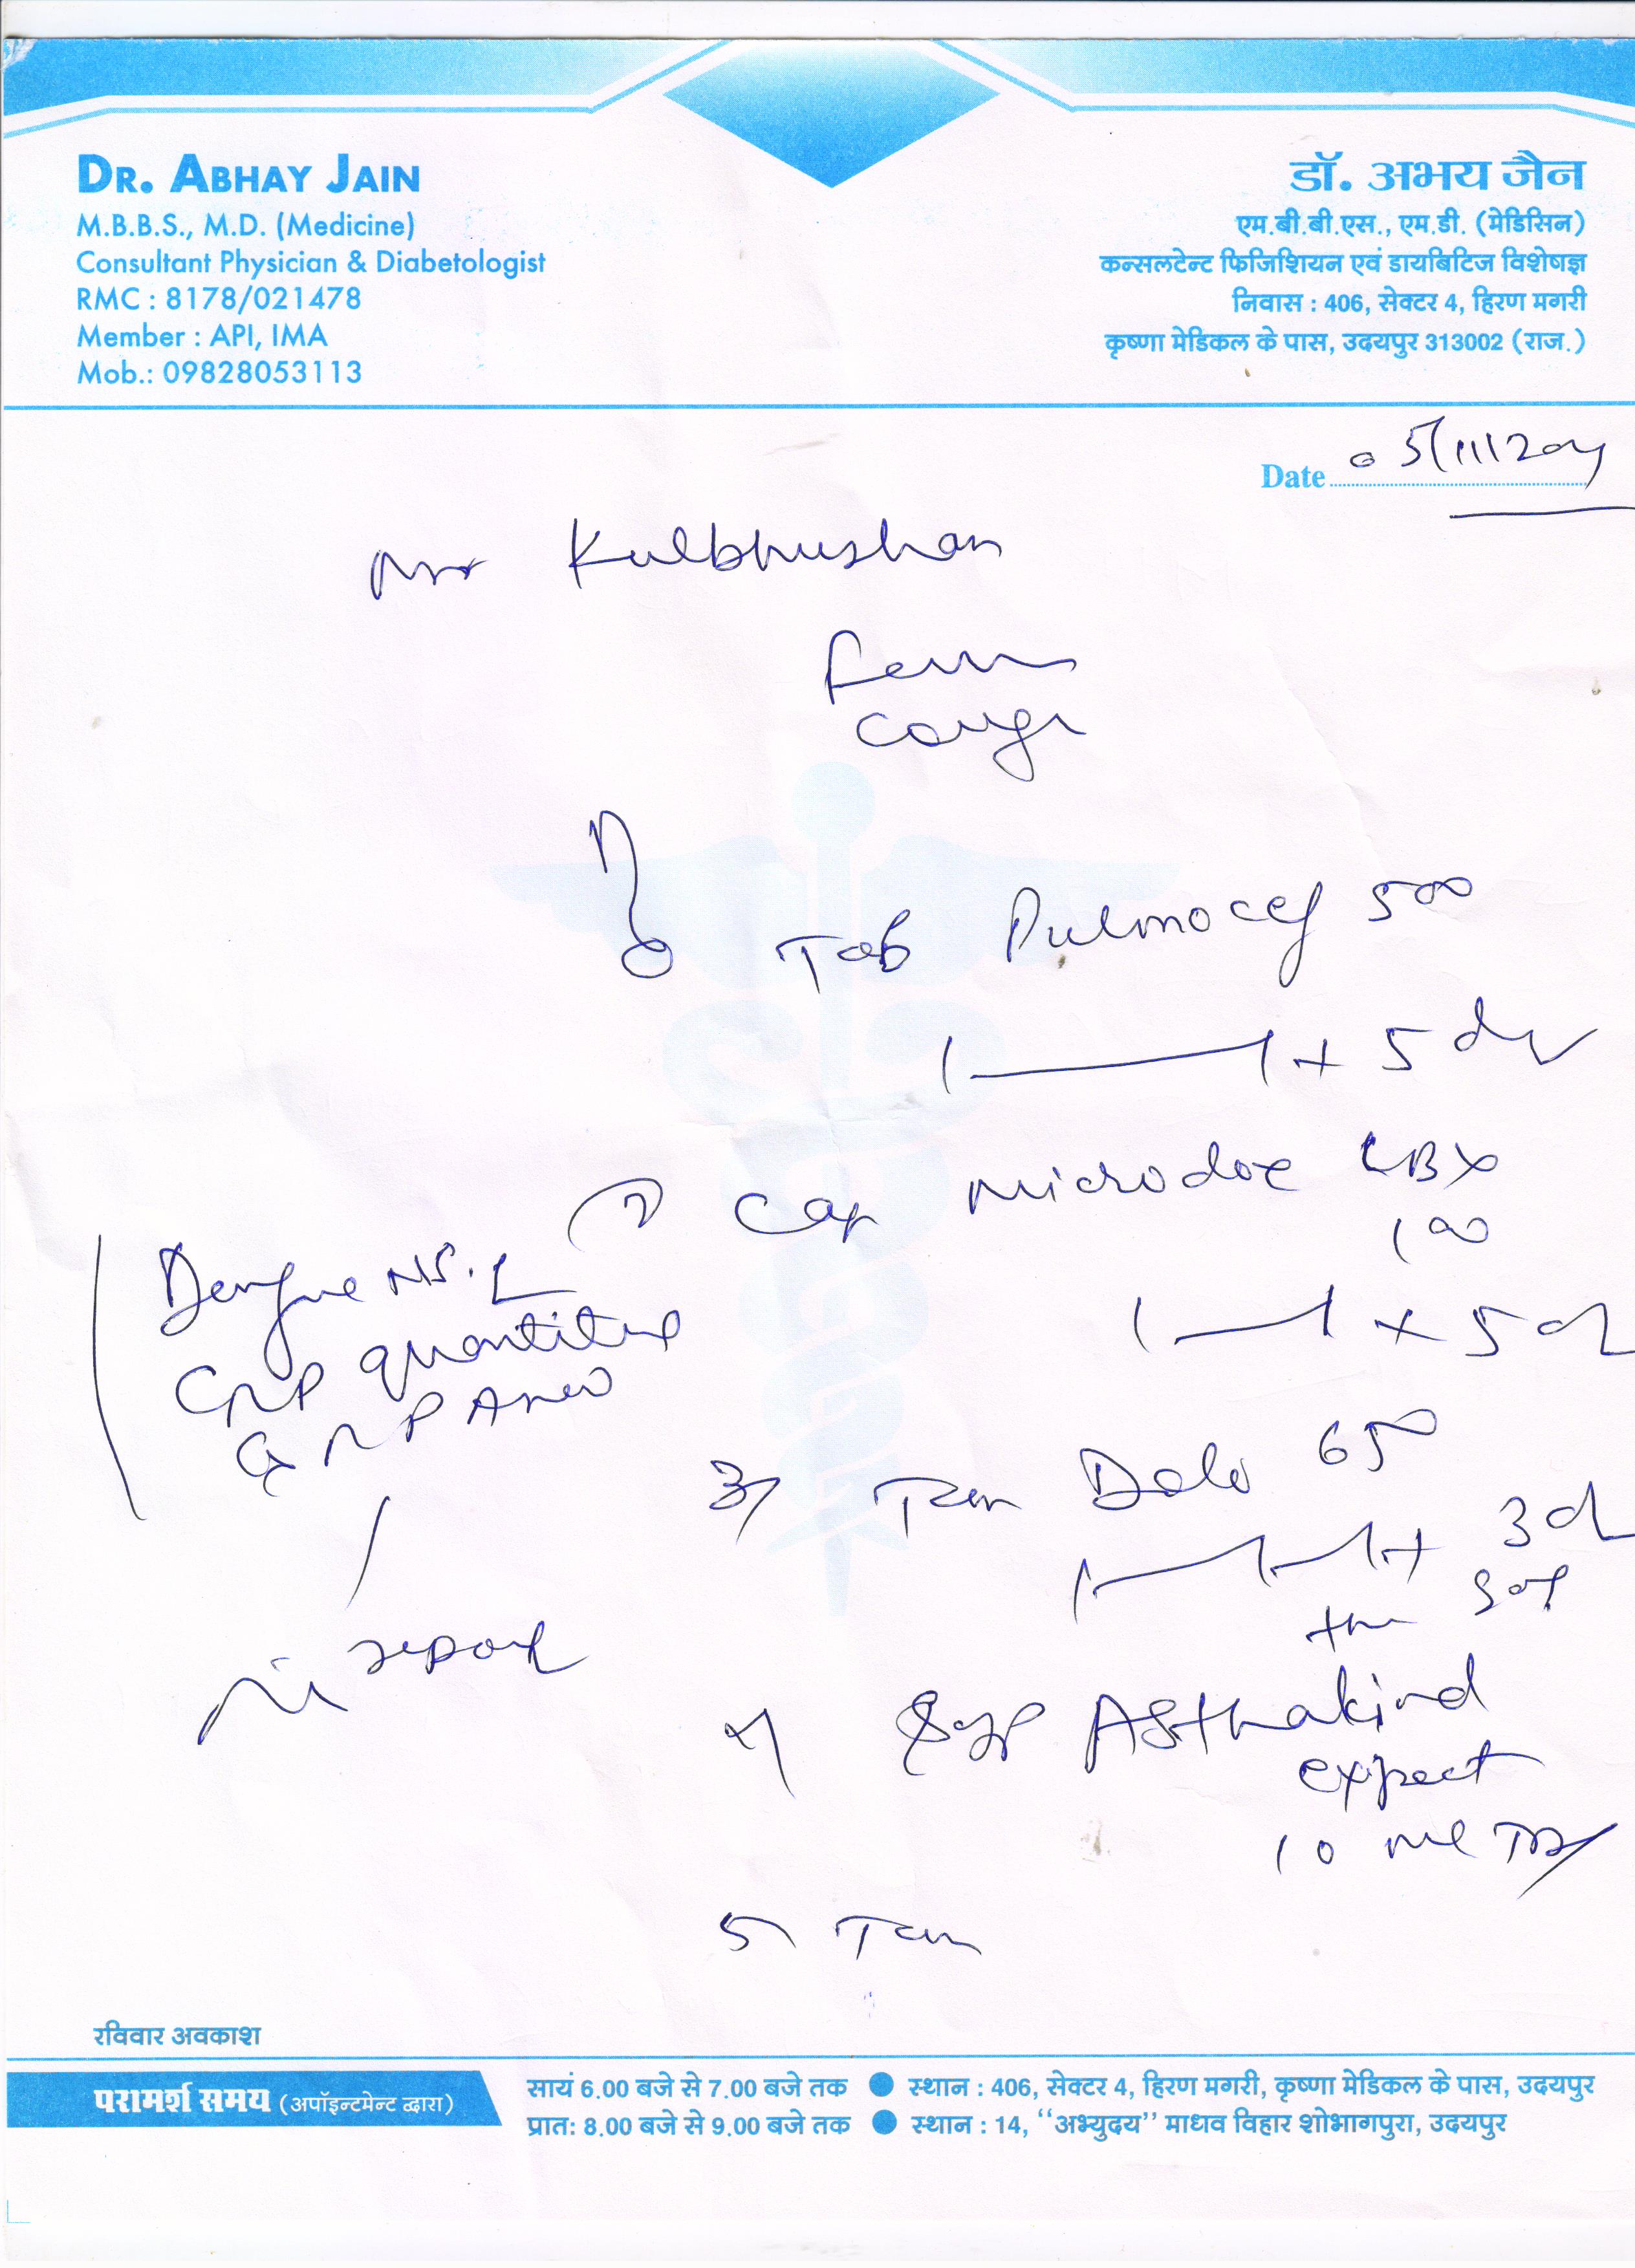 DR. ABHAY JAIN
M.B.B.S., M.D. (Medicine)
Consultant Physician & Diabetologist
RMC : 8178/021478
Member : API, IMA
Mob.: 09828053113
डॉ. अभय जैन
एम.बी.बी.एस., एम.डी. (मेडिसिन)
कन्सलटेन्ट फिजिशियन एवं डायबिटिज विशेषज्ञ
निवास : 406, सेक्टर 4, हिरण मगरी
कृष्णा मेडिकल के पास, उदयपुर 313002 (राज.)
Date 05/11/
Mr Kulbhushan
Cough
Tab Pulmocef 500
1 1 + 5 d
2) Cap Microdox LBX
100
1 1 x 5 d
Dengue NS.1
CRP quantitive
3) Dolo 650
1 1 1 + 3 d
report
4) Syp Asthakind
expect
10 ml TDS
5)
रविवार अवकाश
परामर्श समय (अपॉइन्टमेन्ट द्वारा)
सायं 6.00 बजे से 7.00 बजे तक ● स्थान : 406, सेक्टर 4, हिरण मगरी, कृष्णा मेडिकल के पास, उदयपुर
प्रात: 8.00 बजे से 9.00 बजे तक ● स्थान : 14, ‘‘अभ्युदय’’ माधव विहार शोभागपुरा, उदयपुर